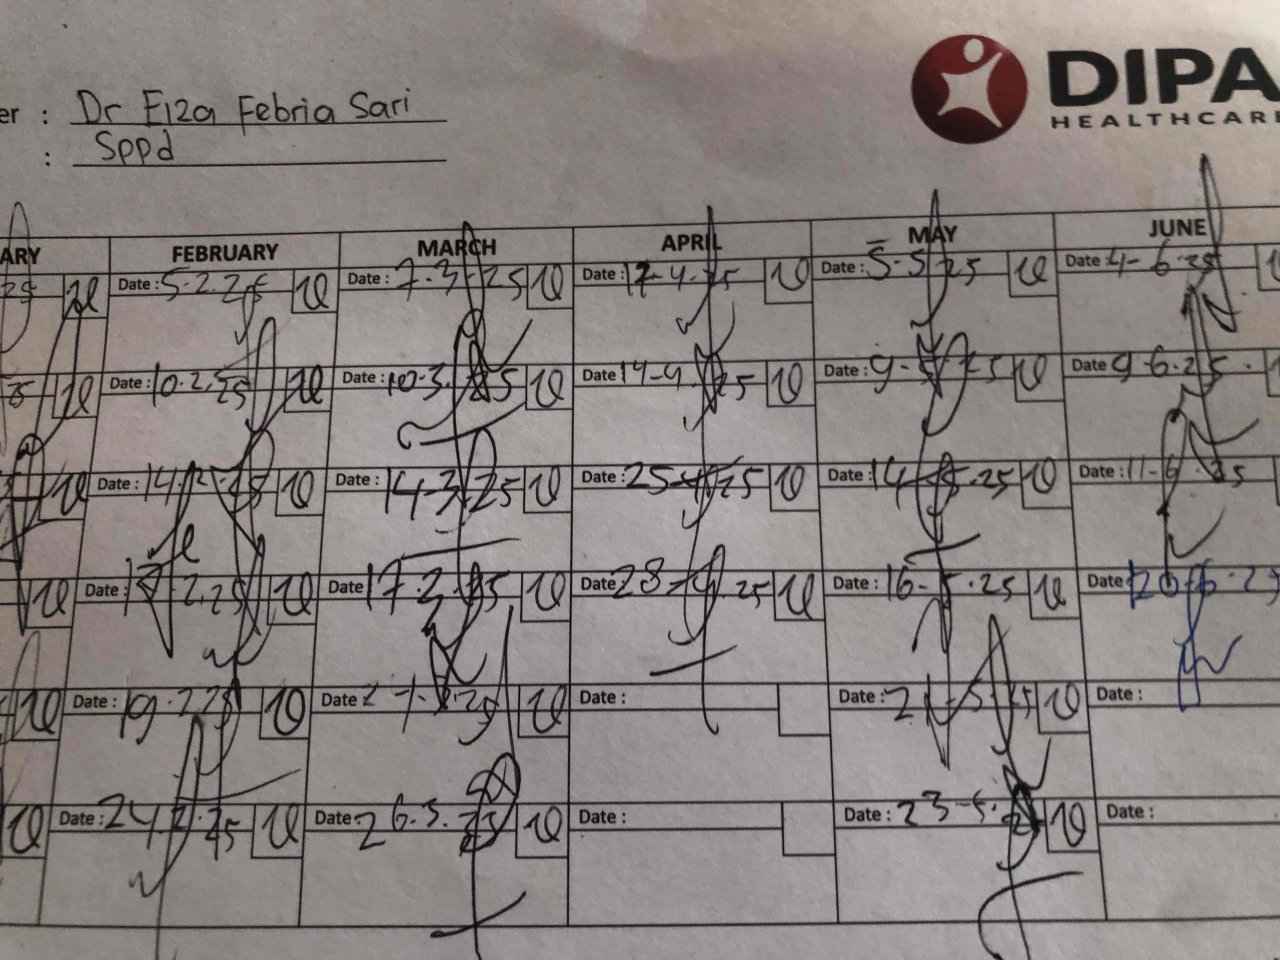 DIPA
HEALTHCARE
er : Dr Elza Febria Sari
: Sppd
ARY FEBRUARY MARCH APRIL MAY JUNE
25 Date : 5.2.25 Date : 7.3.25 Date : 17-4.25 Date : 5-5.25 Date : 4-6.25
Date : 10.2.25 Date : 10-3.25 Date : 14-4.25 Date : 9-5.25 Date : 9-6.25
Date : 14.2.25 Date : 14-3.25 Date : 25-4.25 Date : 14-5.25 Date : 11-6.25
Date : 17.2.25 Date : 17.3.25 Date : 28-4.25 Date : 16-5.25 Date : 20-6.25
Date : 19.2.25 Date : Date : Date : 21-5.25 Date :
Date : 24.2.25 Date : 26.3.25 Date : Date : 23-5.25 Date :